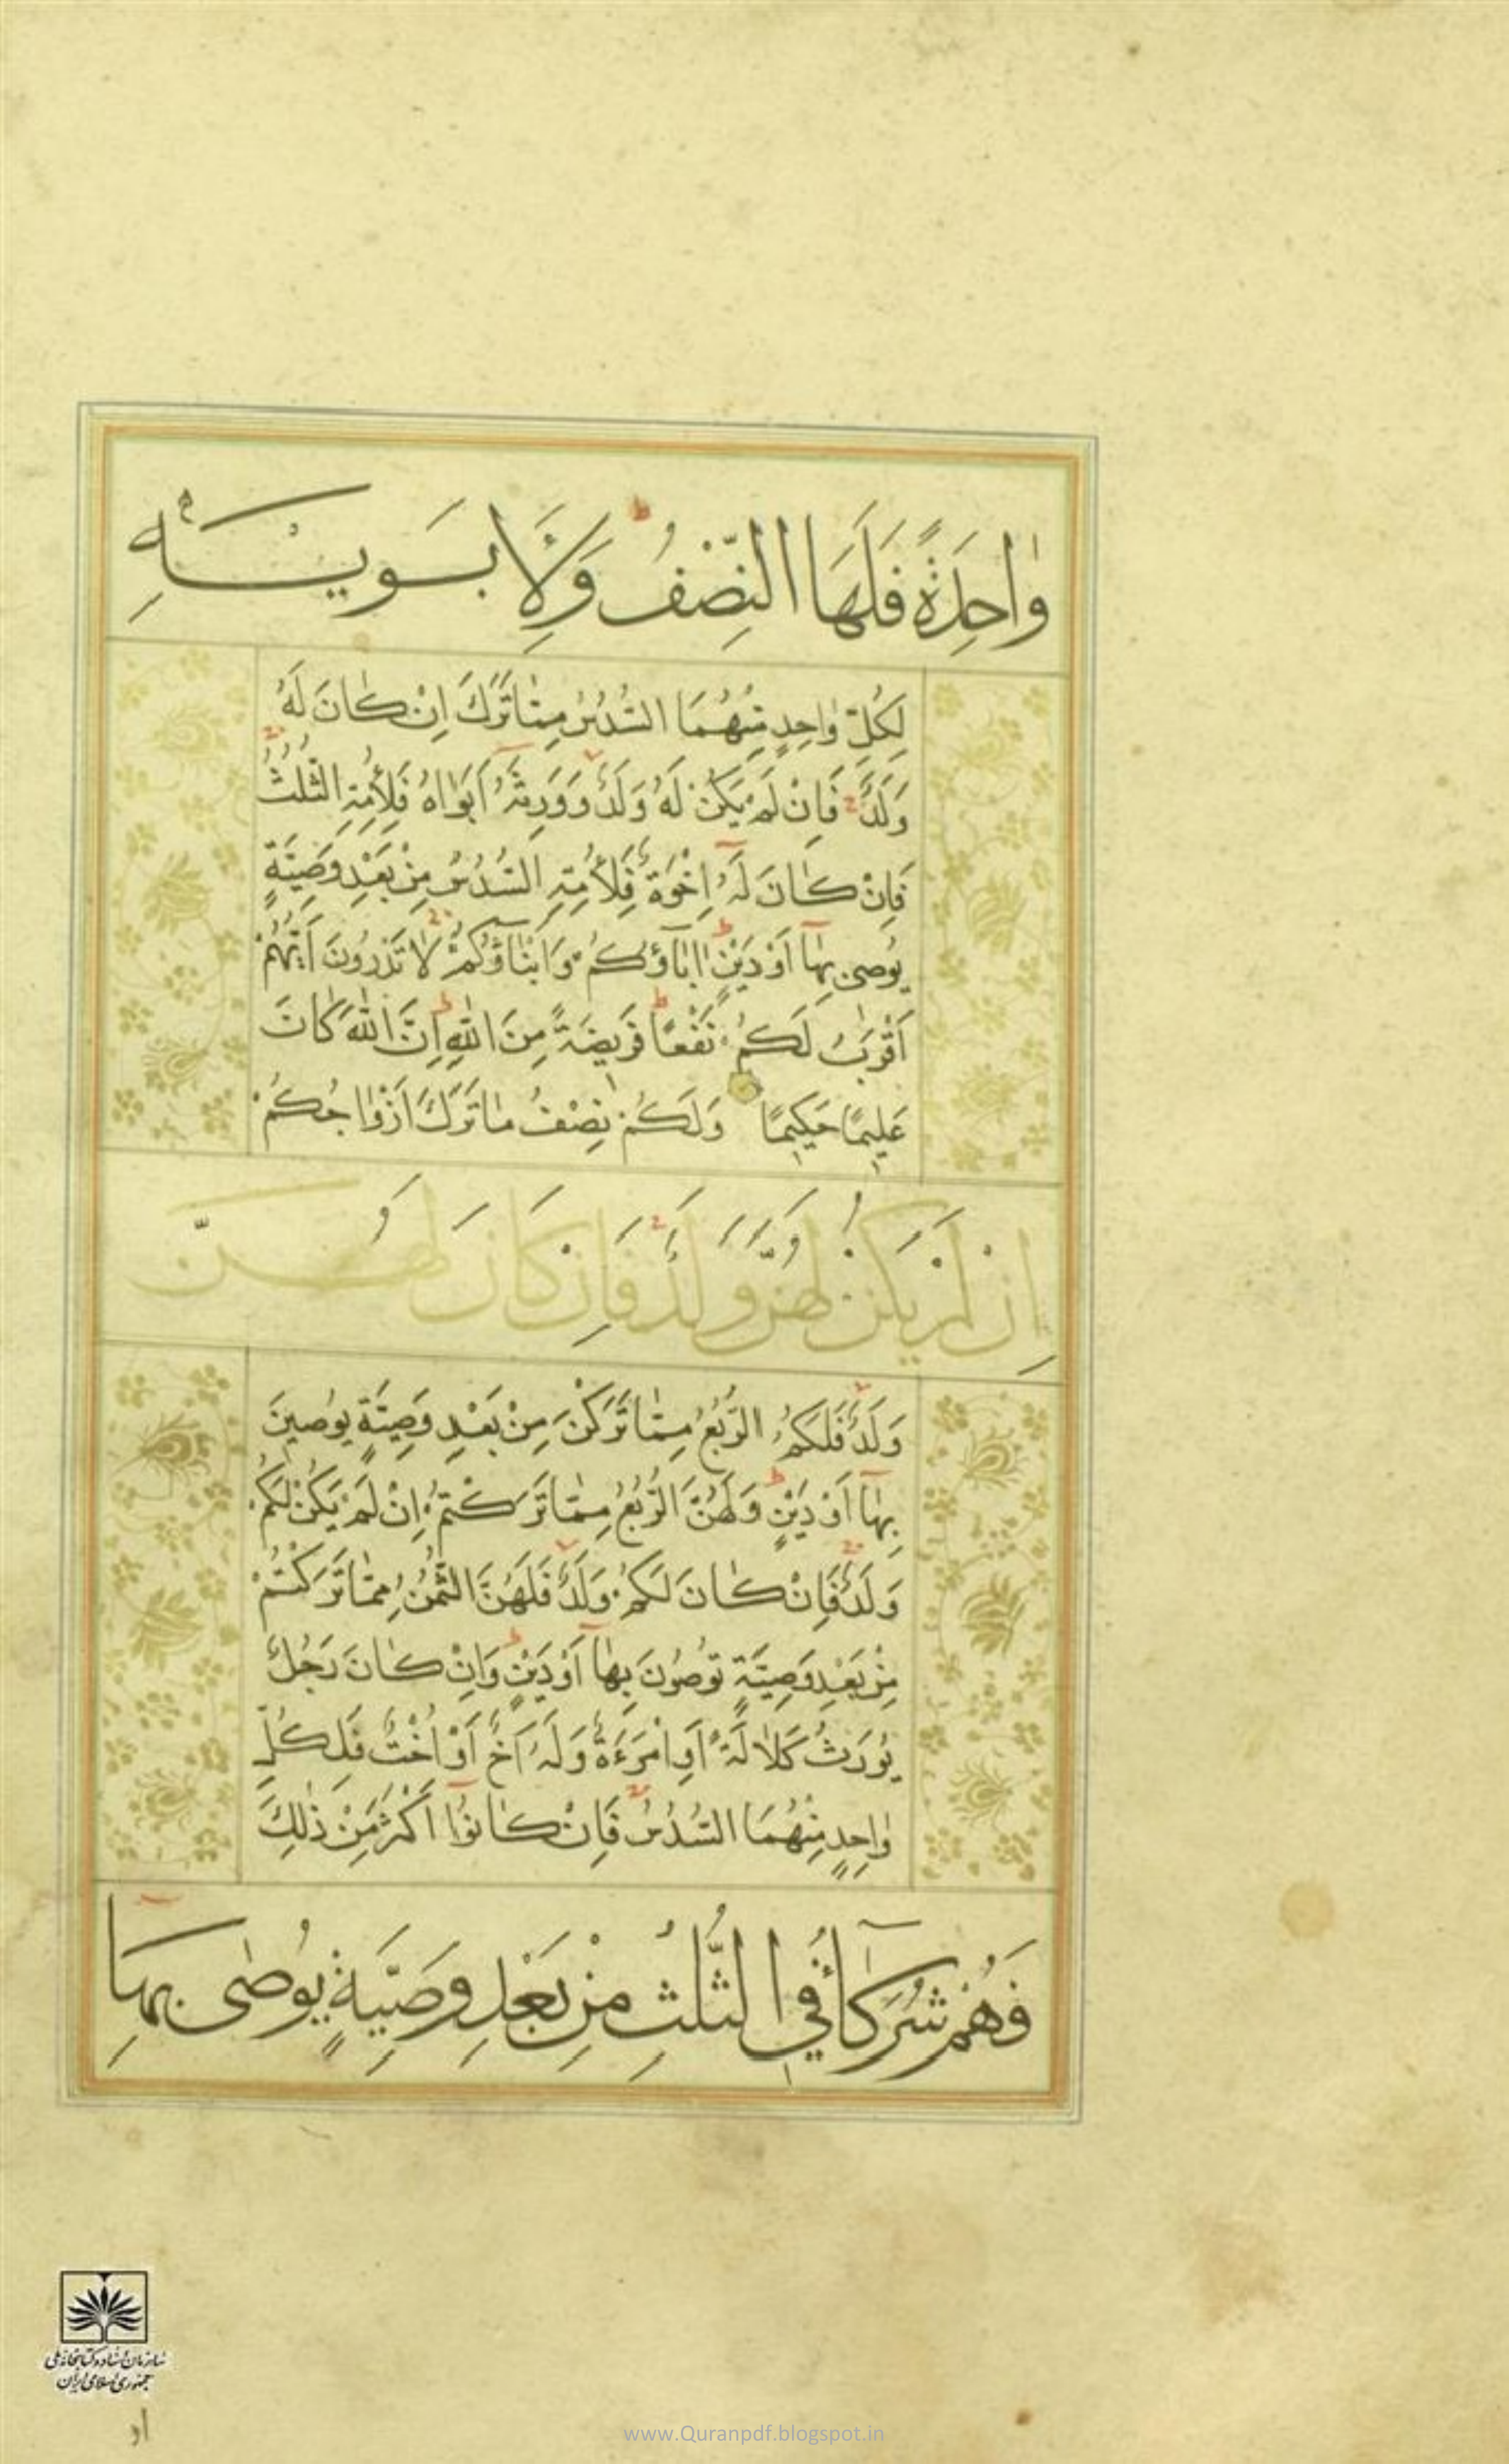 وٰاحِدَةً فَلَهَا النِّصْفُ وَلِاَبَوَيْهِ
لِكُلِّ وٰاحِدٍ مِنْهُمَا السُّدُسُ مِمّٰا تَرَكَ اِنْ كٰانَ لَهُ
وَلَدٌ فَاِنْ لَمْ يَكُنْ لَهُ وَلَدٌ وَوَرِثَهُ اَبَوٰاهُ فَلِاُمِّهِ الثُّلُثُ
فَاِنْ كٰانَ لَهُ اِخْوَةٌ فَلِاُمِّهِ السُّدُسُ مِنْ بَعْدِ وَصِيَّةٍ
يُوصِي بِهٰا اَوْ دَيْنٍ اٰبٰاؤُكُمْ وَاَبْنٰاؤُكُمْ لٰا تَدْرُونَ اَيُّهُمْ
اَقْرَبُ لَكُمْ نَفْعًا فَرِيضَةً مِنَ اللّٰهِ اِنَّ اللّٰهَ كٰانَ
عَلِيمًا حَكِيمًا وَلَكُمْ نِصْفُ مٰا تَرَكَ اَزْوٰاجُكُمْ
اِنْ لَمْ يَكُنْ لَهُنَّ وَلَدٌ فَاِنْ كَانَ لَهُنَّ
وَلَدٌ فَلَكُمُ الرُّبُعُ مِمّٰا تَرَكْنَ مِنْ بَعْدِ وَصِيَّةٍ يُوصِينَ
بِهٰا اَوْ دَيْنٍ وَلَهُنَّ الرُّبُعُ مِمّٰا تَرَكْتُمْ اِنْ لَمْ يَكُنْ لَكُمْ
وَلَدٌ فَاِنْ كٰانَ لَكُمْ وَلَدٌ فَلَهُنَّ الثُّمُنُ مِمّٰا تَرَكْتُمْ
مِنْ بَعْدِ وَصِيَّةٍ تُوصُونَ بِهٰا اَوْ دَيْنٍ وَاِنْ كٰانَ رَجُلٌ
يُورَثُ كَلٰالَةً اَوِ امْرَءَةٌ وَلَهُ اَخٌ اَوْ اُخْتٌ فَلِكُلِّ
وٰاحِدٍ مِنْهُمَا السُّدُسُ فَاِنْ كٰانُوا اَكْثَرَ مِنْ ذٰلِكَ
فَهُمْ شُرَكٰاءُ فِي الثُّلُثِ مِنْ بَعْدِ وَصِيَّةٍ يُوصٰى بِهٰا
سازمان اسناد و کتابخانه ملی
جمهوری اسلامی ایران
او
www.Quranpdf.blogspot.in